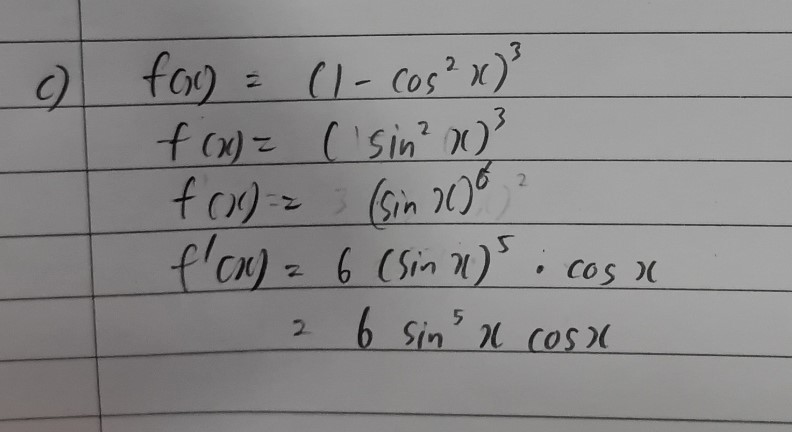 c) f(x) = (1 - cos² x)³
f(x) = (sin² x)³
f(x) = (sin x)⁶
f'(x) = 6 (sin x)⁵ · cos x
= 6 sin⁵ x cos x